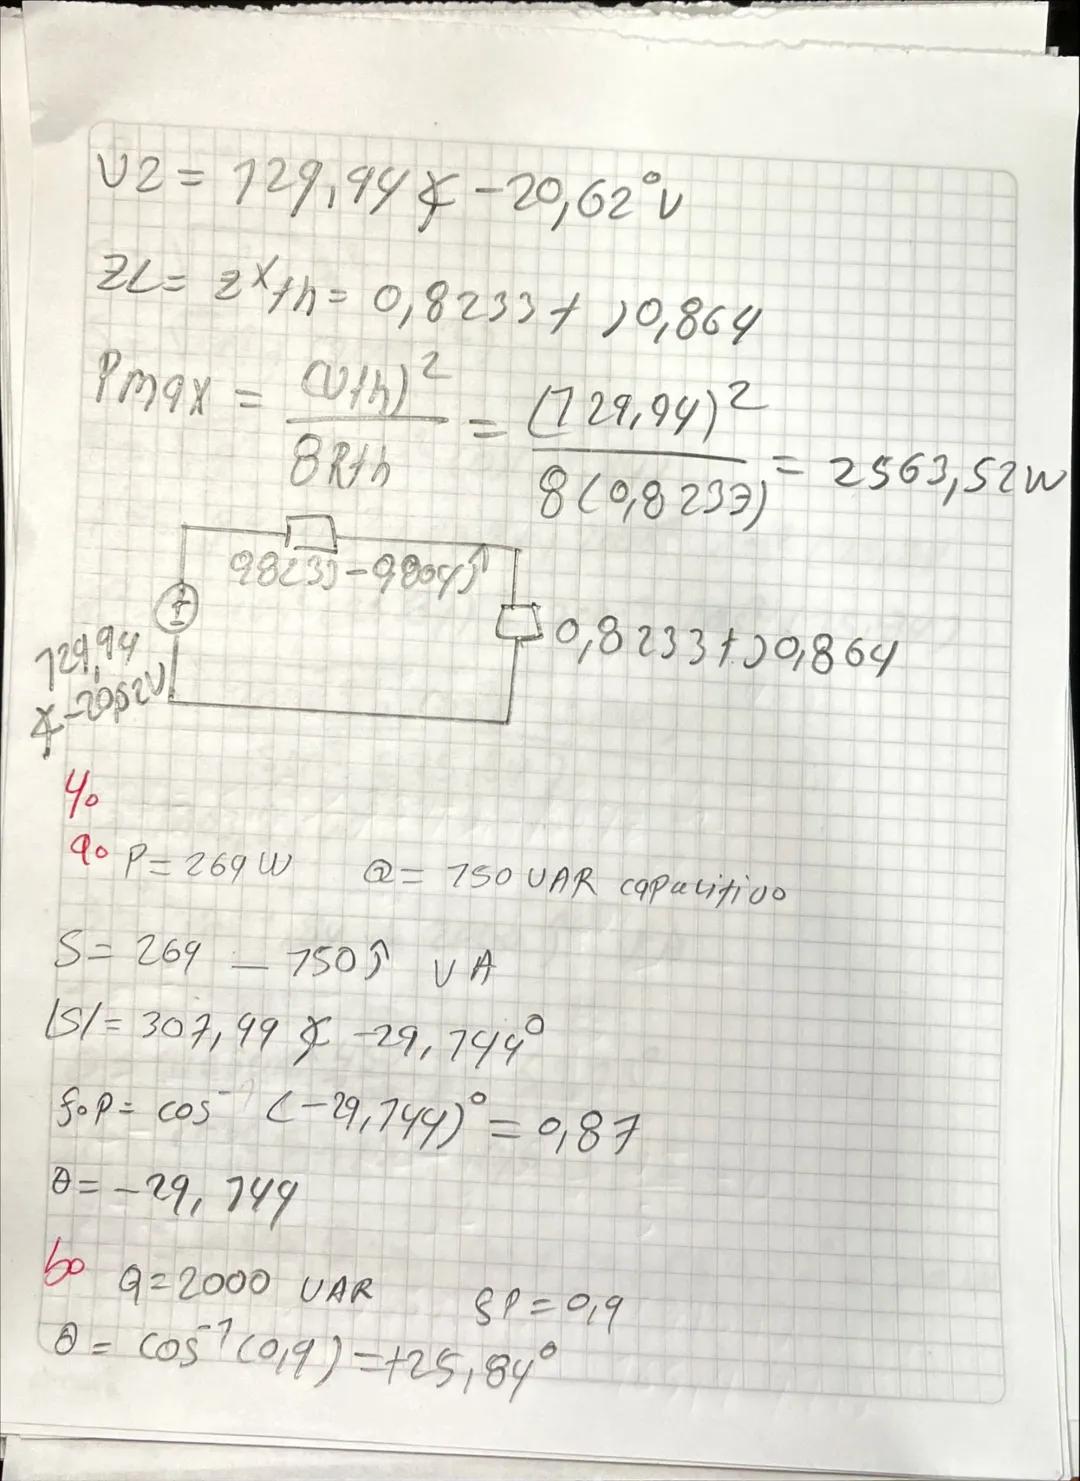 V2 = 129,94 ∡ -20,62° V
ZL = Z*th = 0,8233 + j0,864
Pmax = (Vth)² / 8Rth = (129,94)² / 8(0,8233) = 2563,52W
0,8233 - 0,864j
129,94
∡-20,62V
0,8233 + j0,864
4.
a. P = 269 W Q = 150 VAR capacitivo
S = 269 - 150j VA
|S| = 307,99 ∡ -29,144°
f.P = cos⁻¹ (-29,144)° = 0,87
θ = -29,144
b. Q = 2000 VAR fP = 0,9
θ = cos⁻¹(0,9) = +25,84°